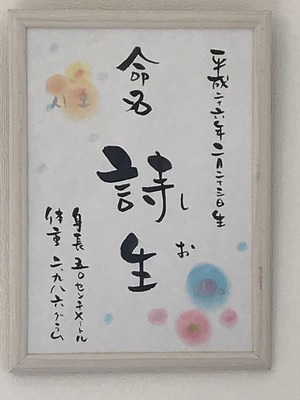 平成二十六年二月二十三日生
命名
詩生
しお
身長 五〇センチメートル
体重 二、九八六グラム